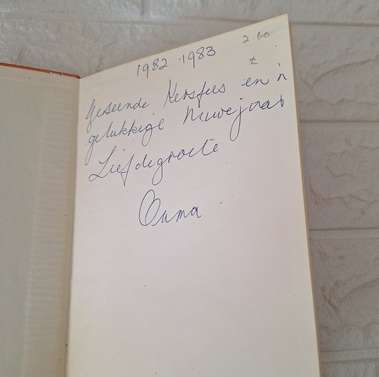 1982-1983 2 60
Geseënde Kersfees en 'n
gelukkige Nuwejaar
Liefdegroete
Ouma